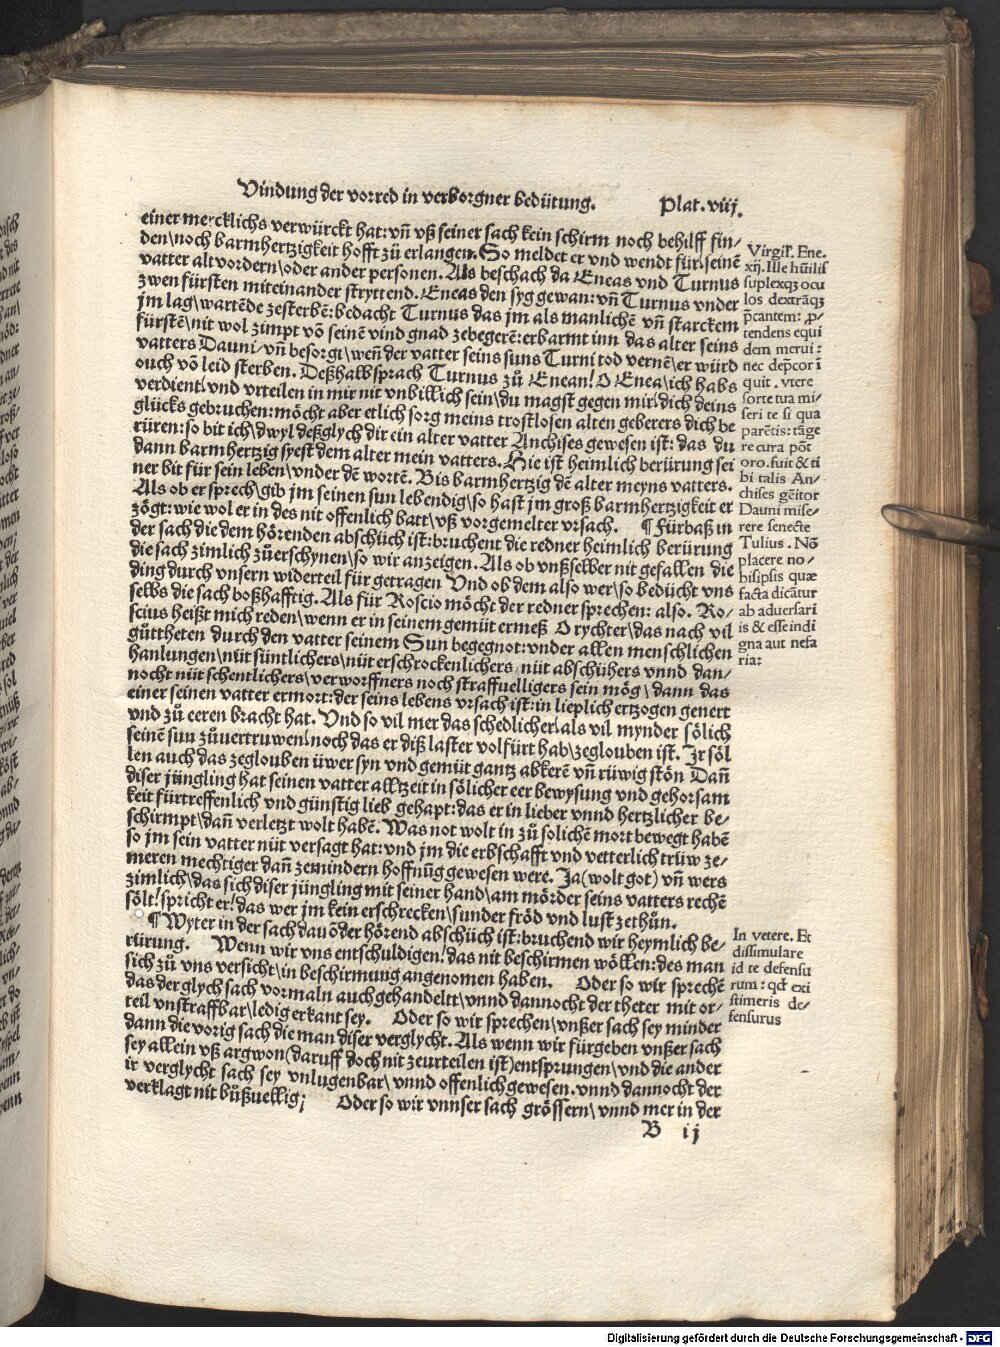 Vindung der vorred in verborgner bedütung. Plat. viij.
einer mercklichs verwürckt hat: vñ vß seiner sach kein schirm noch behilff fin⸗
den\noch barmhertzigkeit hofft zů erlangen. So meldet er vnd wendt für\seinẽ
vatter alt vordern\oder ander personen. Als beschach da Eneas vnd Turnus
zwen fürsten miteinander stryttend. Eneas den syg gewan: vñ Turnus vnder
jm lag\wartẽde zesterbẽ: bedacht Turnus das jm als manlichẽ vñ starckem
fürstẽ\nit wol zimpt võ seinẽ vind gnad zebegerẽ: erbarmt inn das alter seins
vatters Dauni\vñ besorgt\weñ der vatter seins suns Turni tod vernẽ\er würd
ouch võ leid sterben. Deßhalb sprach Turnus zů Enean! O Enea\ich habs
verdient\vnd vrteilen in mir nit vnbillich sein\du magst gegen mir\dich deins
glücks gebruchen: möcht aber etlich sorg meins trostlosen alten geberers dich be
rüren: so bit ich\dwyl deßglych dir ein alter vatter Anchises gewesen ist: das du
dann barmhertzig syest dem alter mein vatters. Hie ist heimlich berürung sei
ner bit für sein leben\vnder dẽ wortẽ. Bis barmhertzig dẽ alter meyns vatters.
Als ob er sprech\gib jm seinen sun lebendig\so hast jm groß barmhertzigkeit er
zögt: wie wol er in des nit offenlich batt\vß vorgemelter vrsach. ¶ Fürbaß in
der sach die dem hörenden abschüch ist: bruchent die redner heimlich berürung
die sach zimlich zůerschynen\so wir anzeigen. Als ob vnßselber nit gefallen die
ding durch vnsern widerteil für getragen Vnd ob dem also wer\so bedücht vns
selbs die sach boßhafftig. Als für Roscio möcht der redner sprechen: also. Ro⸗
scius heißt mich reden\wenn er in seinem gemüt ermeß O rychter\das nach vil
gůttheten durch den vatter seinem Sun begegnot: vnder allen menschlichen
hanlungen\nüt süntlichers\nüt erschrockenlichers\nüt abschühers vnnd dan⸗
nocht nüt schentlichers\verworffners noch straffuelligers sein mög\dann das
einer seinen vatter ermort: der seins lebens vrsach ist: in lieplich ertzogen genert
vnd zů eeren bracht hat. Vnd so vil mer das schedlicher\als vil mynder sölich
seinẽ sun zůuertruwen\noch das er diß laster volfürt hab\zeglouben ist. Ir söl
len auch das zeglouben üwer syn vnd gemüt gantz abkerẽ vñ rüwig stõn Dañ
diser jüngling hat seinen vatter alltzeit in sölicher eer bewysung vnd gehorsam
keit fürtreffenlich vnd günstig lieb gehapt: das er in lieber vnnd hertzlicher be⸗
schirmpt\dañ verletzt wolt habẽ. Was not wolt in zů solichẽ mort bewegt habẽ
so jm sein vatter nüt versagt hat: vnd jm die erbschafft vnd vetterlich trüw ze⸗
meren mechtiger dañ zemindern hoffnũg gewesen were. Ja (wolt got) vñ wers
zimlich\das sich diser jüngling mit seiner hand\am mörder seins vatters rechẽ
sölt! spricht er! das wer jm kein erschrecken\sunder fröd vnd lust zethůn.
¶ Wyter in der sach dauõ der hörend abschüch ist: bruchend wir heymlich be⸗
rürung. Wenn wir vns entschuldigen! das nit beschirmen wöllen: des man
sich zů vns versicht\in beschirmung angenomen haben. Oder so wir sprechẽ
das der glych sach vormaln auch gehandeltt\vnnd dannocht der theter mit or⸗
teil vnstraffbar\ledig erkant sey. Oder so wir sprechen\vnßer sach sey minder
dann die vorig sach die man diser verglycht. Als wenn wir fürgeben vnßer sach
sey allein vß argwon (daruff doch nit zeurteilen ist) entsprungen\vnd die ander
ir verglycht sach sey vnlugenbar\vnnd offenlich gewesen. vnnd dannocht der
verklagt nit bůßuellig; Oder so wir vnnser sach grössern\vnnd mer in der
B ij
Virgil. Ene.
xij. Ille hũilis
suplexqꝫ ocu
los dextrãqꝫ
p̃cantem: ꝓ⸗
tendens equi
dem merui:
nec dep̃cor ĩ
quit. vtere
sorte tua mi⸗
seri te si qua
parẽtis: tãge
re cura põt
oro. fuit & ti
bi talis An⸗
chises gẽitor
Dauni mise⸗
rere senecte
Tulius. Nõ
placere no⸗
bisipsis quæ
facta dicãtur
ab aduersari
is & esse indi
gna aut nefa
ria:
In vetere. Et
dissimulare
id te defensu
rum: qđ exi
stimeris de⸗
fensurus
Digitalisierung gefördert durch die Deutsche Forschungsgemeinschaft - DFG